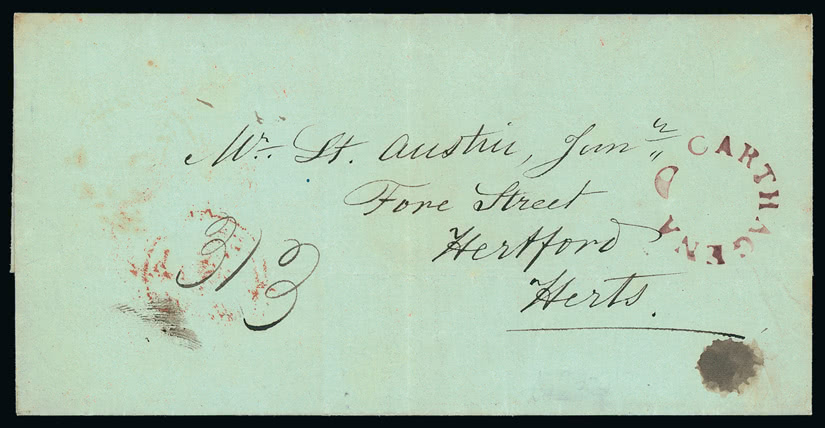 Mr. St. Austin, Junr,
Fore Street
Hertford
Herts.
CARTHAGENA